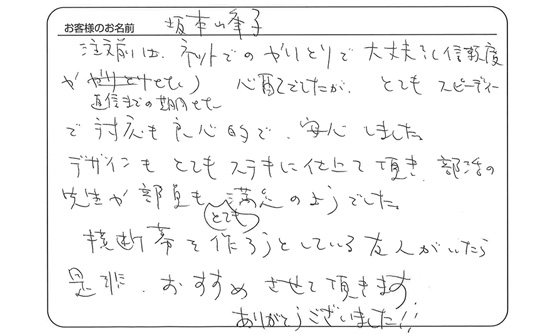 お客様のお名前 坂本峰子
注文前は、ネットでのやりとりで大丈夫?(信頼度
が 返信までの期間など) 心配でしたが、とてもスピーディー
で対応も良心的で、安心しました。
デザインもとてもステキに仕上て頂き、部活の
先生が部員も とても 満足のようでした。
横断幕を作ろうとしている友人がいたら
是非、おすすめさせて頂きます
ありがとうございました!!